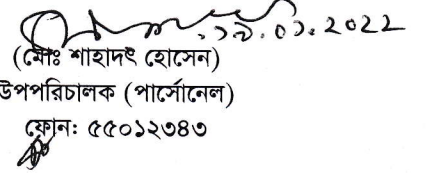 ১৯.০১.2022
(মোঃ শাহাদৎ হোসেন)
উপপরিচালক (পার্সোনেল)
ফোন: ৫৫০১২৩৪৩